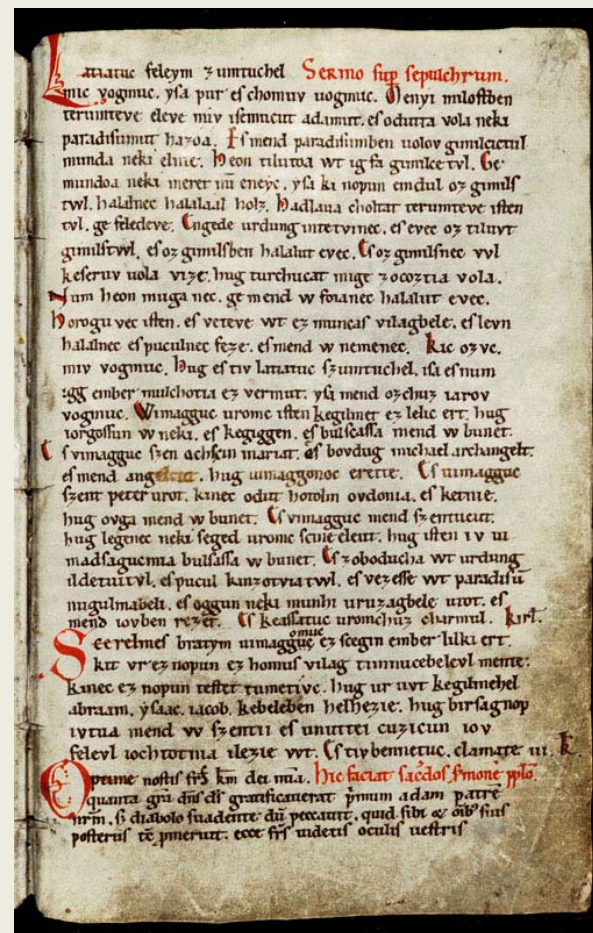 Latiatuc feleym zumtuchel Sermo sup sepulchrum.
mic vogmuc. ysa pur es chomuv uogmuc. Menyi milostben
terumteve eleve miv isemucut adamut. es odutta vola neki
paradisumut hazoa. Es mend paradisumben uolov gimilcictul
munda neki elnie. Heon tilutoa wt ig fa gimilce tvl. Ge
mundoa neki meret nū eneyc. ysa ki nopun emdul oz gimils
twl. halalnec halalaal holz. Hadlaua choltat terumteve isten
tvl. ge feledeve. Engede urdung intetvinec. es evec oz tiluvt
gimilstwl. es oz gimilsben halalut evec. Es oz gimilsnec vvl
keseruv uola vize. hug turchucat mige zocoztia vola.
Num heon muga nec. ge mend w foianec halalut evec.
Horogu vec isten. es veteve wt ez muncas vilagbele. es levn
halalnec es puculnec feze. es mend w nemenec. Kic ozvc.
miv vogmuc. Hug es tiv latiatuc szumtuchel. isa es num
igg ember mulchotia ez vermut. ysa mend ozchuz iarov
vogmuc. Wimagguc uromc isten kegilmet ez lelic ert. hug
iorgossun w neki. es kegiggen. es bulsassa mend w bunet.
Es vimagguc szen achscin mariat. es bovdug michael archangelt.
es mend angelcut. hug uimaggonoc erette. Es uimagguc
szent peter urot. kinec odut hotolm ovdonia. es ketnie.
hug ovga mend w bunet. Es vimagguc mend szentucut.
hug legenec neki seged uromc scine eleut. hug isten iv ui
madsagucmia bulsassa w bunet. Es zoboducha wt urdung
ildetuitvl. es pucul kinzotviatwl. es vezesse wt paradisū
nugulmabeli. es oggun neki munhi uruzagbele utot. es
mend iovben rezet. Es keassatuc uromchuz charmul. Kirł.
Scerelmes bratym uimagguc omuc ez scegin ember lilki ert.
kit vr ez nopun ez homus vilag timnucebelevl mente.
kinec ez nopun testet tumetivc. hug ur uvt kegilmehel
abraam. ysaac. iacob. kebeleben helhezie. hug birsagnop
ivtua mend w szentii es unuttei cuzicun iov
felevl iochtotnia ilezie wt. Es tiv bennetuc. clamate iii. K.
Optime nostis frs̄ km̄ dei mīa. hic faciat sac̄dos s̄monē pplō.
quanta grā dn̄s ds̄ gratificauerat p̄mum adam patrē
nrm̄. s; diabolo suadente dū peccauit. quid sibi &amp; oīb; suis
posteris tē pmeruit. ecce frs̄ uidetis oculis uestris